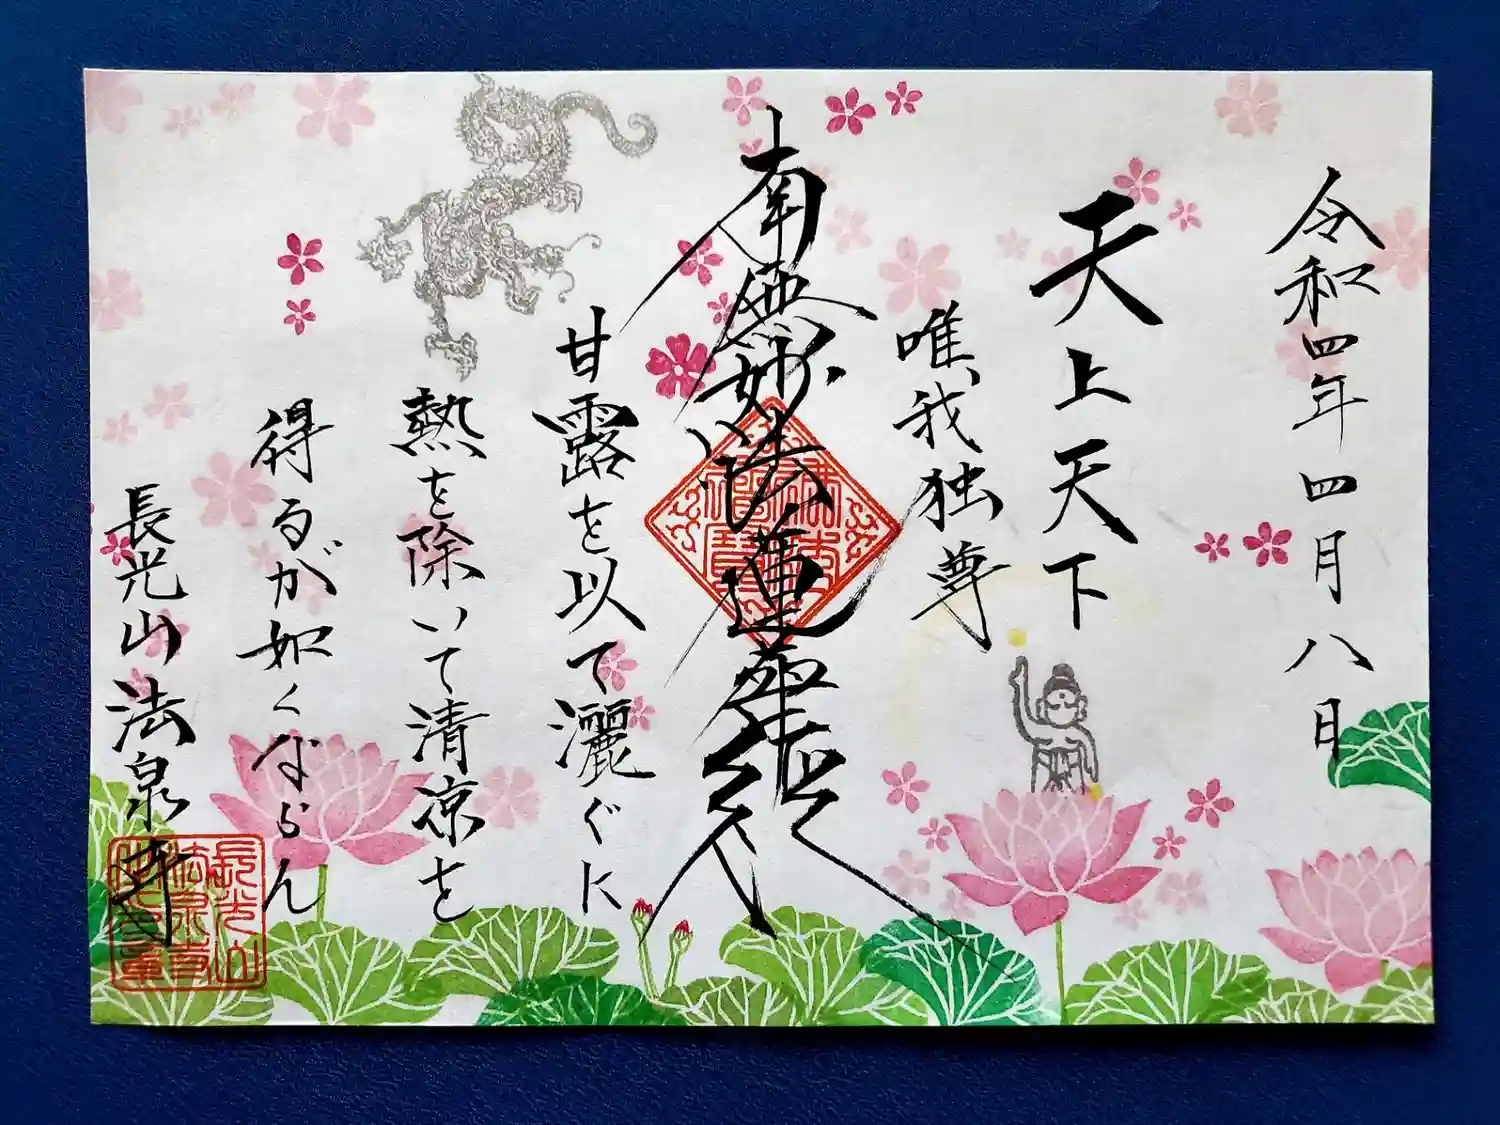 令和四年四月八日
天上天下
唯我独尊
南無妙法蓮華経
甘露を以て灑ぐに
熱を除いて清涼を
得るが如くならん
長光山法泉寺
長光山
法泉寺